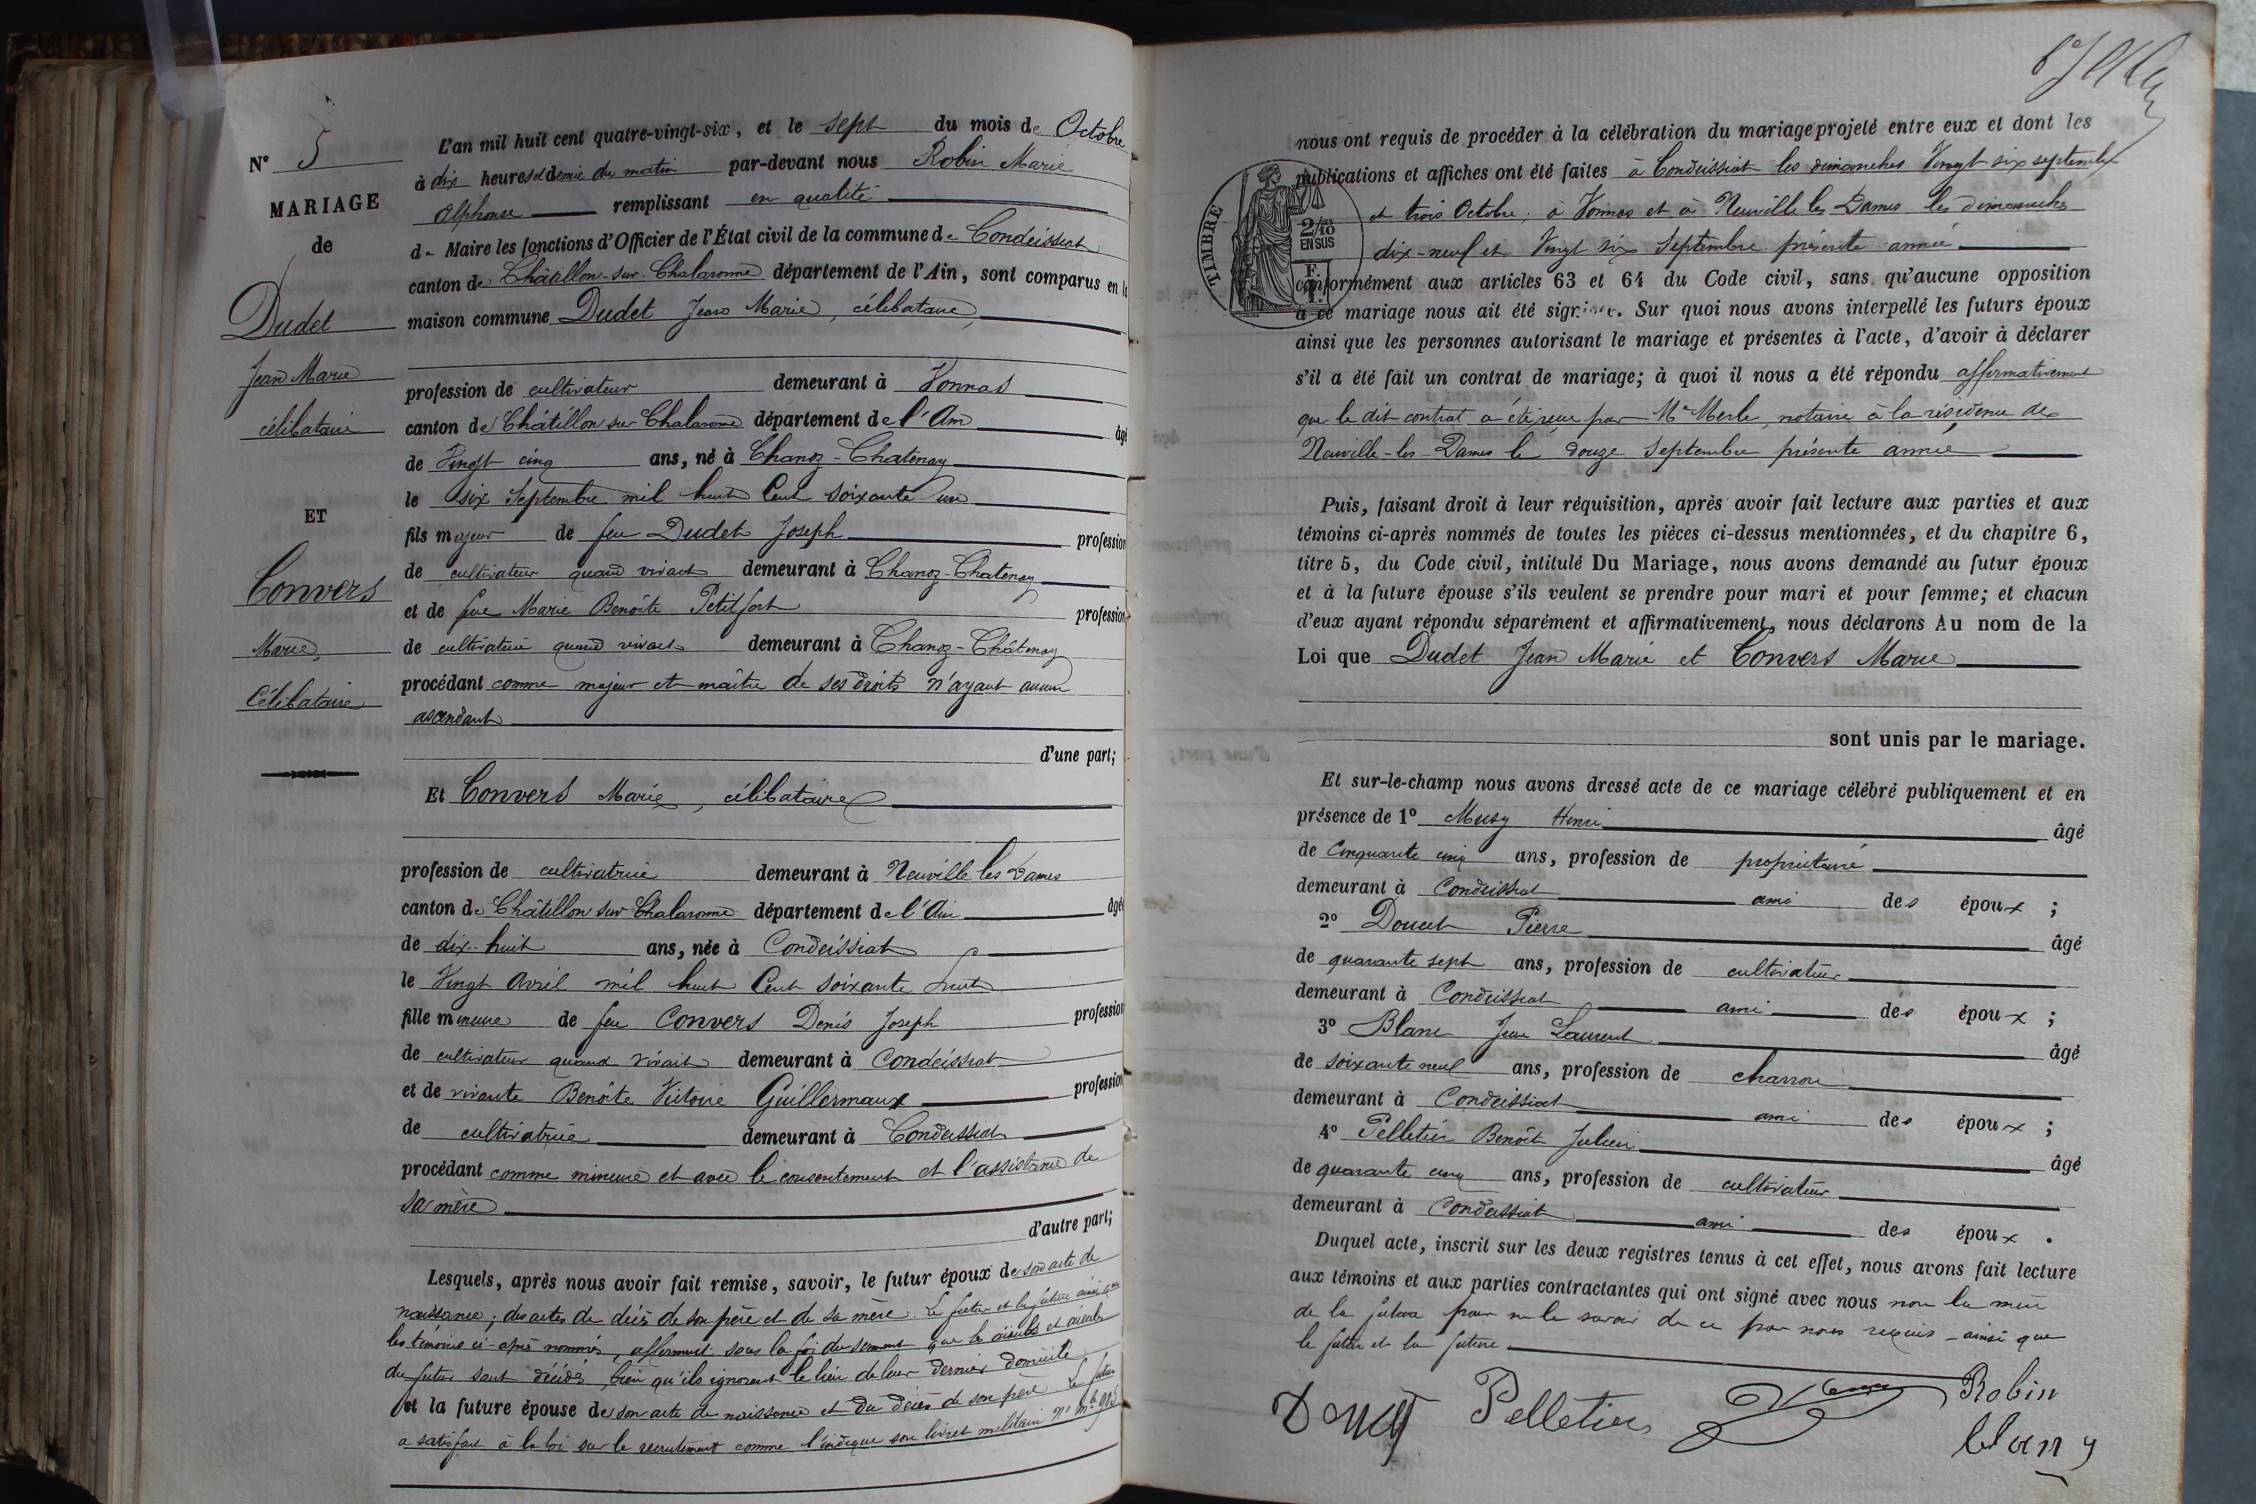 N° 5
MARIAGE
de
Dudet
Jean Marie
célibataire
ET
Convers
Marie,
Célibataire
L'an mil huit cent quatre-vingt-six, et le sept du mois de Octobre
à dix heures et demie du matin par-devant nous Robin Marie
Alphonse remplissant en qualité
de Maire les fonctions d'Officier de l'État civil de la commune de Condeissiat
canton de Châtillon-sur-Chalaronne département de l'Ain, sont comparus en la
maison commune Dudet Jean Marie, célibataire,
profession de cultivateur demeurant à Vonnas
canton de Châtillon sur Chalaronne département de l'Ain âgé
de Vingt cinq ans, né à Chanoz-Chatenay
le six Septembre mil huit Cent soixante un
fils majeur de feu Dudet Joseph profession
de cultivateur quand vivait demeurant à Chanoz-Chatenay
et de feue Marie Benoîte Petitfort profession
de cultivatrice quand vivait demeurant à Chanoz-Châtenay
procédant comme majeur et maître de ses droits n'ayant aucun
ascendant
d'une part;
Et Convers Marie, célibataire
profession de cultivatrice demeurant à Neuville les Dames
canton de Châtillon sur Chalaronne département de l'Ain âgée
de dix-huit ans, née à Condeissiat
le Vingt Avril mil huit Cent soixante huit
fille mineure de feu Convers Denis Joseph profession
de cultivateur quand vivait demeurant à Condeissiat
et de vivante Benoîte Victoire Guillermaux profession
de cultivatrice demeurant à Condeissiat
procédant comme mineure et avec le consentement et l'assistance de
sa mère
d'autre part;
Lesquels, après nous avoir fait remise, savoir, le futur époux de son acte de
naissance; des actes de décès de son père et de sa mère. Le futur et la future ainsi que
les témoins ci-après nommés, affirment sous la foi du serment que les aieuls et aieules
du futur sont décédés, bien qu'ils ignorent le lieu de leur dernier domicile
et la future épouse de son acte de naissance et du décès de son père. Le futur
a satisfait à la loi sur le recrutement comme l'indique son livret militaire N° Mle 905
nous ont requis de procéder à la célébration du mariage projeté entre eux et dont les
publications et affiches ont été faites à Condeissiat les dimanches Vingt six septembre
et trois Octobre; à Vonnas et à Neuville les Dames les dimanches
dix-neuf et Vingt six Septembre présente année
TIMBRE
2/10
EN SUS
conformément aux articles 63 et 64 du Code civil, sans qu'aucune opposition
à ce mariage nous ait été signifiée. Sur quoi nous avons interpellé les futurs époux
ainsi que les personnes autorisant le mariage et présentes à l'acte, d'avoir à déclarer
s'il a été fait un contrat de mariage; à quoi il nous a été répondu affirmativement
que le dit contrat a été reçu par Me Merle, notaire à la résidence de
Neuville-les-Dames le douze Septembre présente année
Puis, faisant droit à leur réquisition, après avoir fait lecture aux parties et aux
témoins ci-après nommés de toutes les pièces ci-dessus mentionnées, et du chapitre 6,
titre 5, du Code civil, intitulé Du Mariage, nous avons demandé au futur époux
et à la future épouse s'ils veulent se prendre pour mari et pour femme; et chacun
d'eux ayant répondu séparément et affirmativement, nous déclarons Au nom de la
Loi que Dudet Jean Marie et Convers Marie
sont unis par le mariage.
Et sur-le-champ nous avons dressé acte de ce mariage célébré publiquement et en
présence de 1° Musy Henri âgé
de Cinquante cinq ans, profession de propriétaire
demeurant à Condeissiat ami des époux;
2° Doucet Pierre âgé
de quarante sept ans, profession de cultivateur
demeurant à Condeissiat ami des époux;
3° Blanc Jean Laurent âgé
de soixante neuf ans, profession de charron
demeurant à Condeissiat ami des époux;
4° Pelletier Benoît Julien âgé
de quarante cinq ans, profession de cultivateur
demeurant à Condeissiat ami des époux.
Duquel acte, inscrit sur les deux registres tenus à cet effet, nous avons fait lecture
aux témoins et aux parties contractantes qui ont signé avec nous non la mère
de la future pour ne le savoir de ce par nous requis - ainsi que
le futur et la future
Doucet Pelletier Robin
blanc